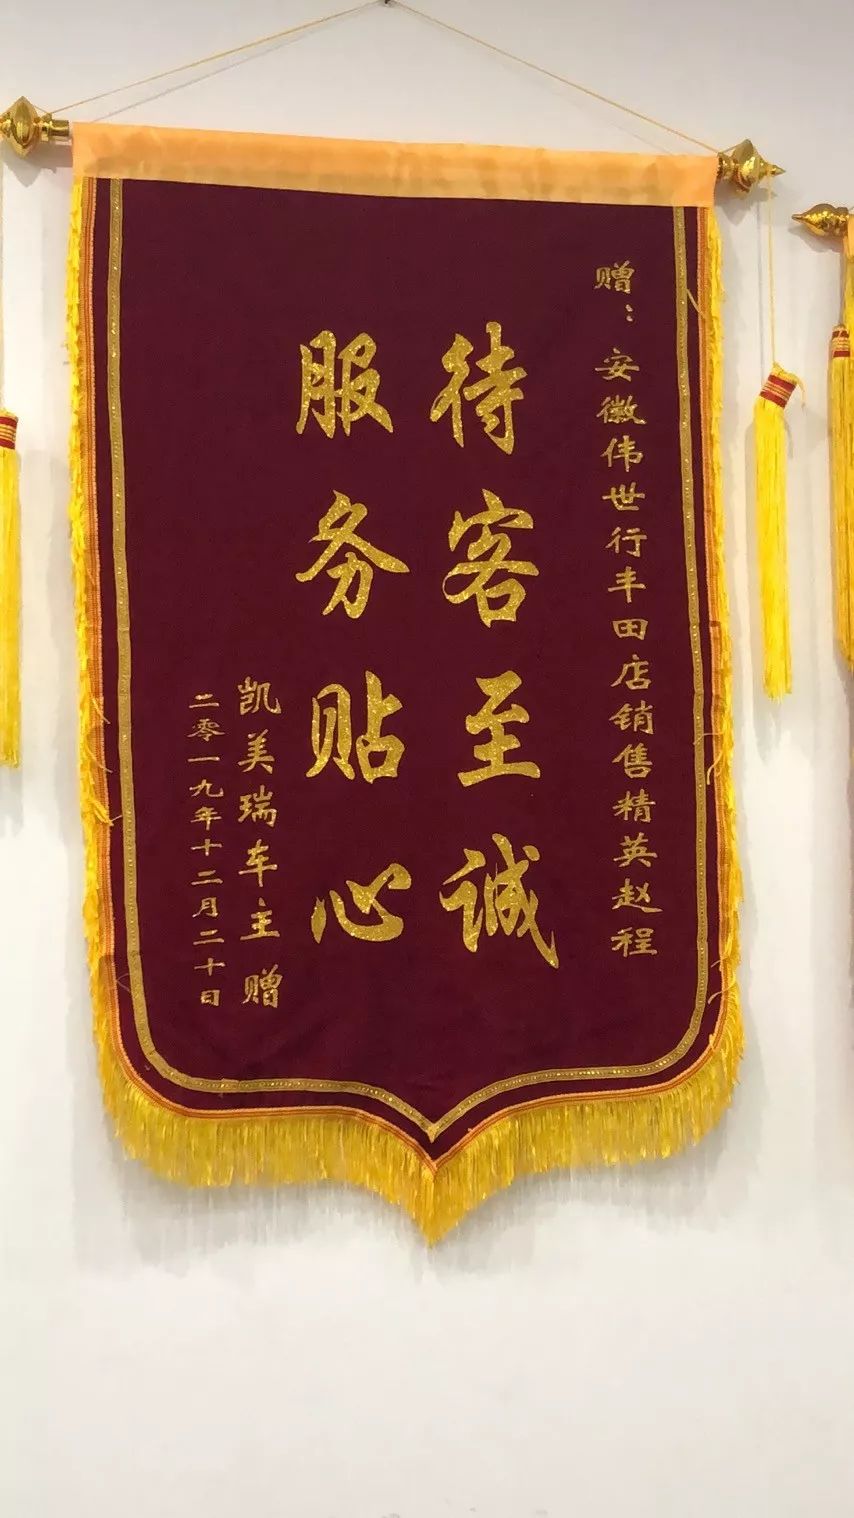 赠：安徽伟世行丰田店销售精英赵程
待客至诚
服务贴心
凯美瑞车主 赠
二零一九年十二月二十日